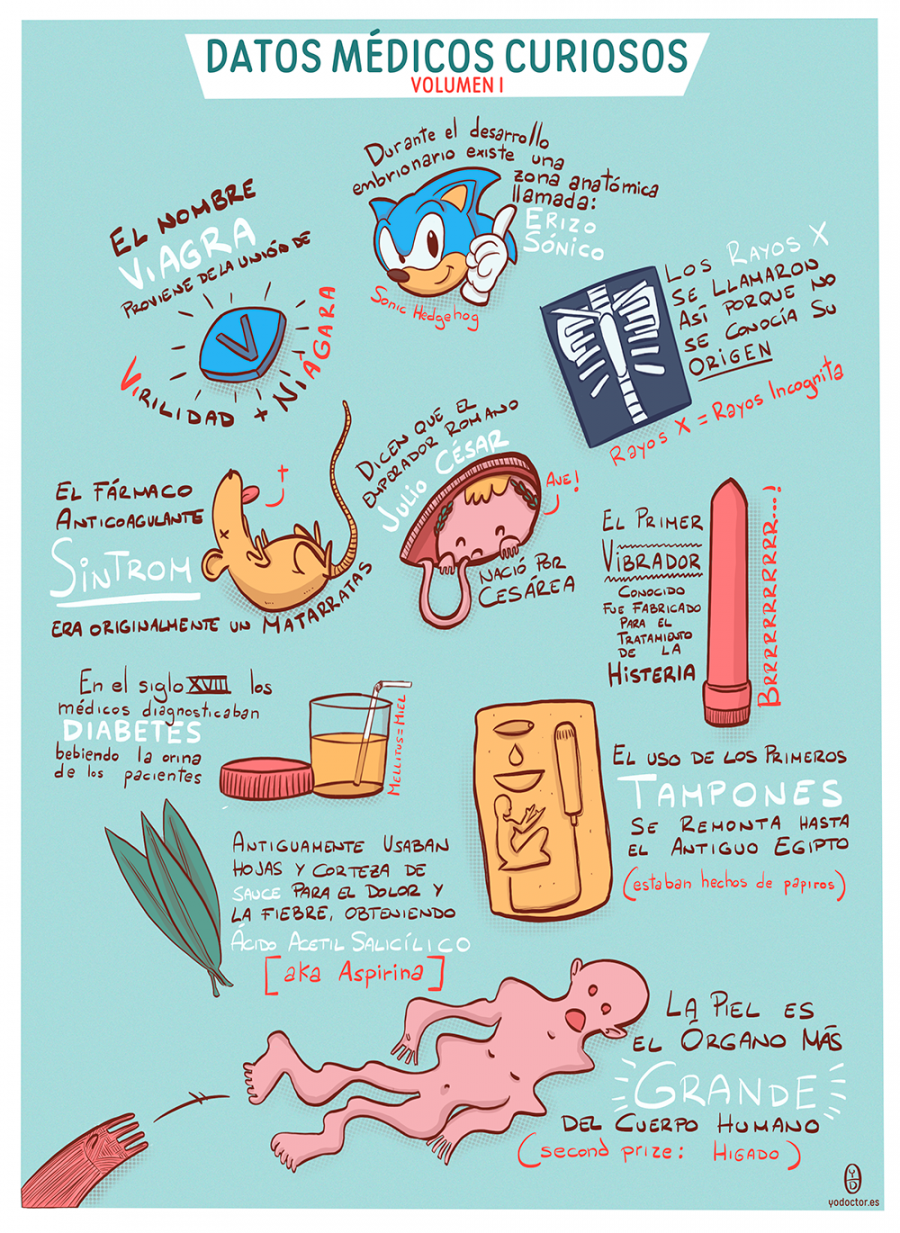 DATOS MÉDICOS CURIOSOS
VOLUMEN I
Durante el desarrollo
embrionario existe una
zona anatómica
llamada:
ERIZO
SÓNICO
Sonic Hedgehog
EL NOMBRE
VIAGRA
PROVIENE DE LA UNIÓN DE
V
VIRILIDAD + NIÁGARA
LOS RAYOS X
SE LLAMARON
ASÍ PORQUE NO
SE CONOCÍA SU
ORIGEN
Rayos X = Rayos Incognita
DICEN QUE EL
EMPERADOR ROMANO
JULIO CÉSAR
AVE!
NACIÓ POR
CESÁREA
EL FÁRMACO
ANTICOAGULANTE
SINTROM
ERA ORIGINALMENTE UN MATARRATAS
EL PRIMER
VIBRADOR
CONOCIDO
FUE FABRICADO
PARA EL
TRATAMIENTO
DE LA
HISTERIA
BRRRRRRRRRRRR...!
En el siglo XVIII los
médicos diagnosticaban
DIABETES
bebiendo la orina
de los pacientes
MELLITUS = MIEL
EL USO DE LOS PRIMEROS
TAMPONES
SE REMONTA HASTA
EL ANTIGUO EGIPTO
(estaban hechos de papiros)
ANTIGUAMENTE USABAN
HOJAS Y CORTEZA DE
SAUCE PARA EL DOLOR Y
LA FIEBRE, OBTENIENDO
ÁCIDO ACETIL SALICÍLICO
[aka Aspirina]
LA PIEL ES
EL ÓRGANO MÁS
GRANDE
DEL CUERPO HUMANO
(second prize: HIGADO)
YD
yodoctor.es